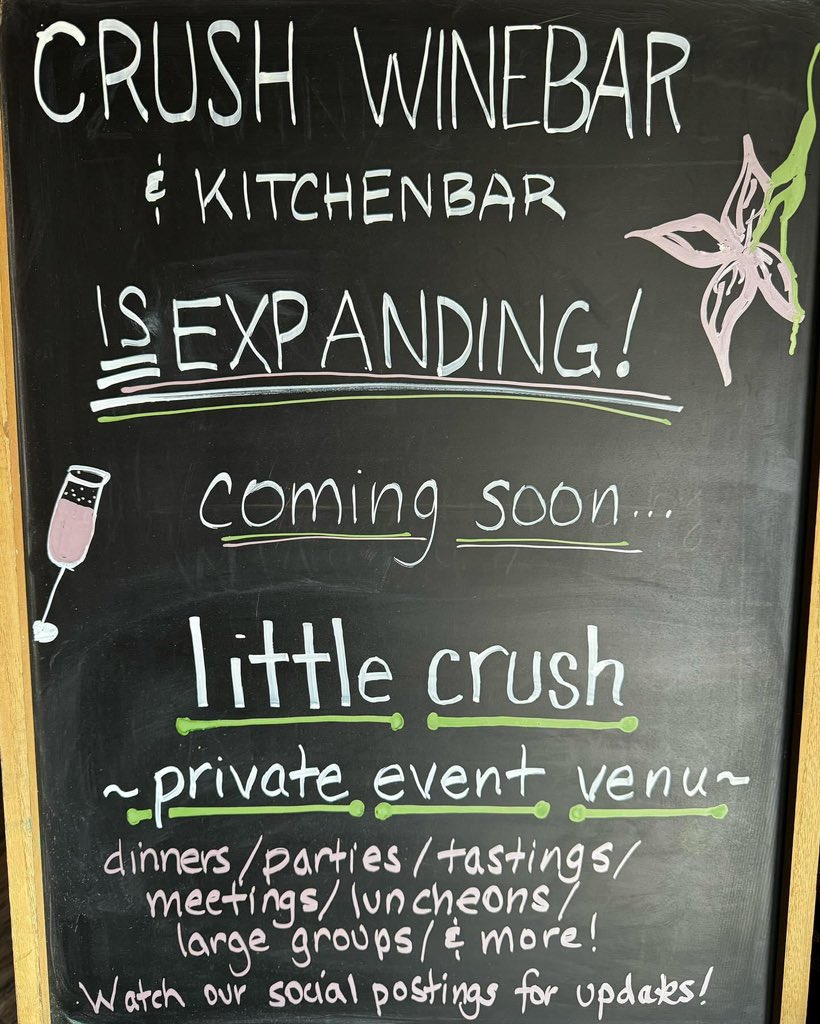 CRUSH WINEBAR
& KITCHENBAR
IS EXPANDING!
coming soon...
little crush
~private event venu~
dinners/parties/tastings/
meetings/luncheons/
large groups/& more!
Watch our social postings for updates!